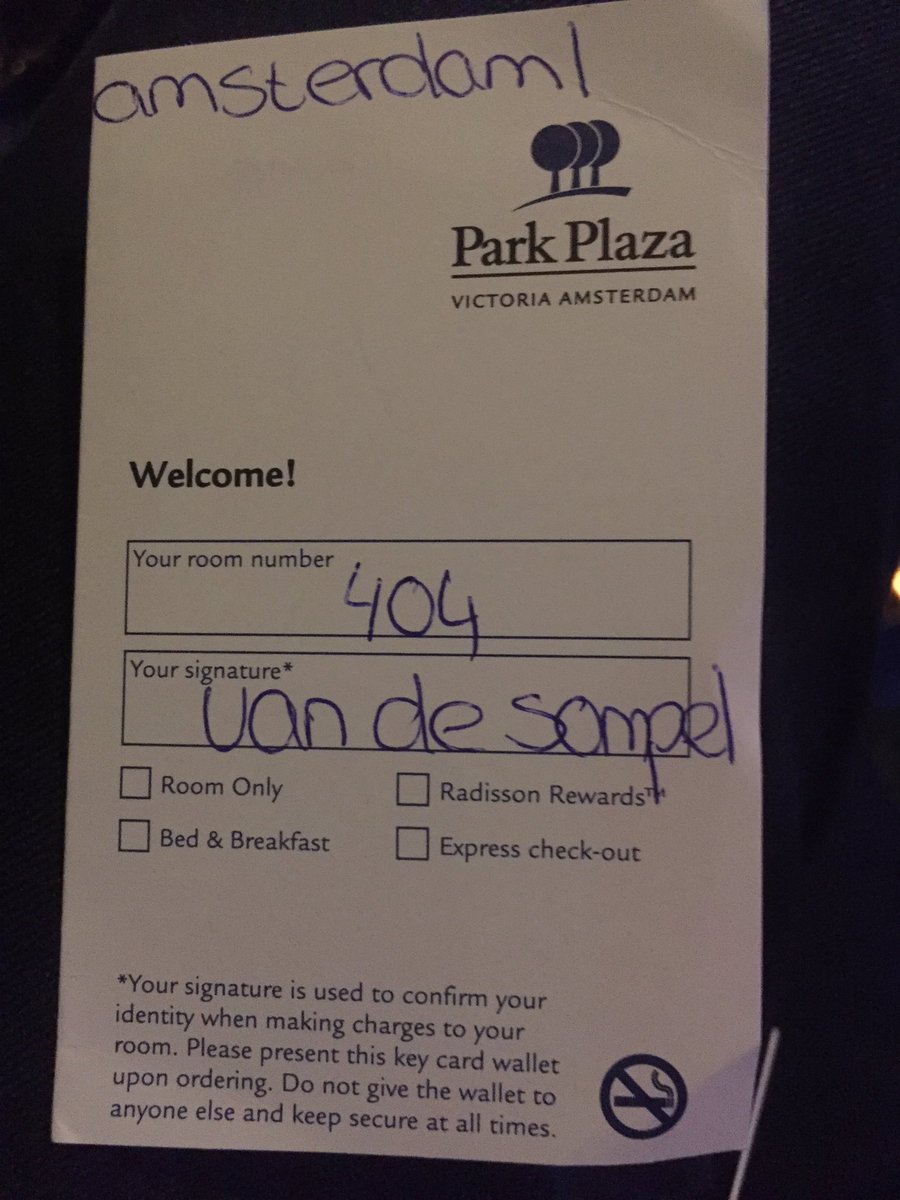 amsterdam1
Park Plaza
VICTORIA AMSTERDAM
Welcome!
Your room number
404
Your signature*
van de sompel
Room Only
Radisson Rewards™
Bed & Breakfast
Express check-out
*Your signature is used to confirm your
identity when making charges to your
room. Please present this key card wallet
upon ordering. Do not give the wallet to
anyone else and keep secure at all times.